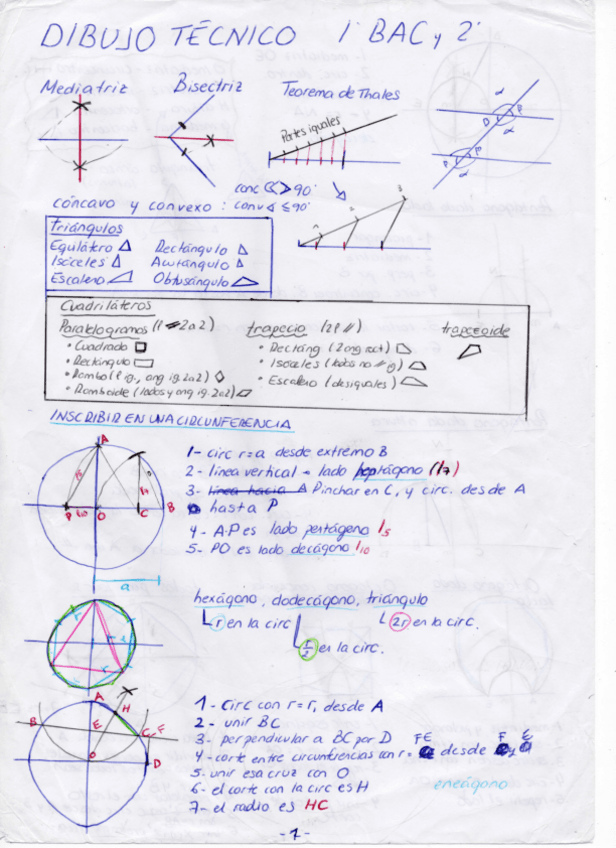 DIBUJO TÉCNICO 1º BAC y 2º
Mediatriz Bisectriz Teorema de Thales
Partes iguales
conc ∢ > 90º
cóncavo y convexo : conv ∢ ≤ 90º
Triángulos
Equilátero Rectángulo
Isóceles Acutángulo
Escaleno Obtusángulo
Cuadriláteros
Paralelogramos (// 2a2) trapecio (2P //) trapezoide
• Cuadrado • Rectáng (2 ang rect)
• Rectángulo • Isóceles (lados no // ig)
• Rombo (l ig., ang ig. 2a2) • Escaleno (desiguales)
• Romboide (lados y ang ig. 2a2)
INSCRIBIR EN UNA CIRCUNFERENCIA
1- circ r=a desde extremo B
2- línea vertical - lado heptágono (l7)
3- línea hacia A Pinchar en C, y circ. desde A
hasta P
4- A-P es lado pentágono l5
5- PO es lado decágono l10
A
P O C B
a
hexágono, dodecágono, triángulo
r en la circ 2r en la circ.
r/2 en la circ.
1- Circ con r=r, desde A
2- unir BC
3- perpendicular a BC por D FE F E
4- corte entre circunferencias con r= desde y
5- unir esa cruz con O
6- el corte con la circ es H eneágono
7- el radio es HC
A H
B E C F
O D
-1-